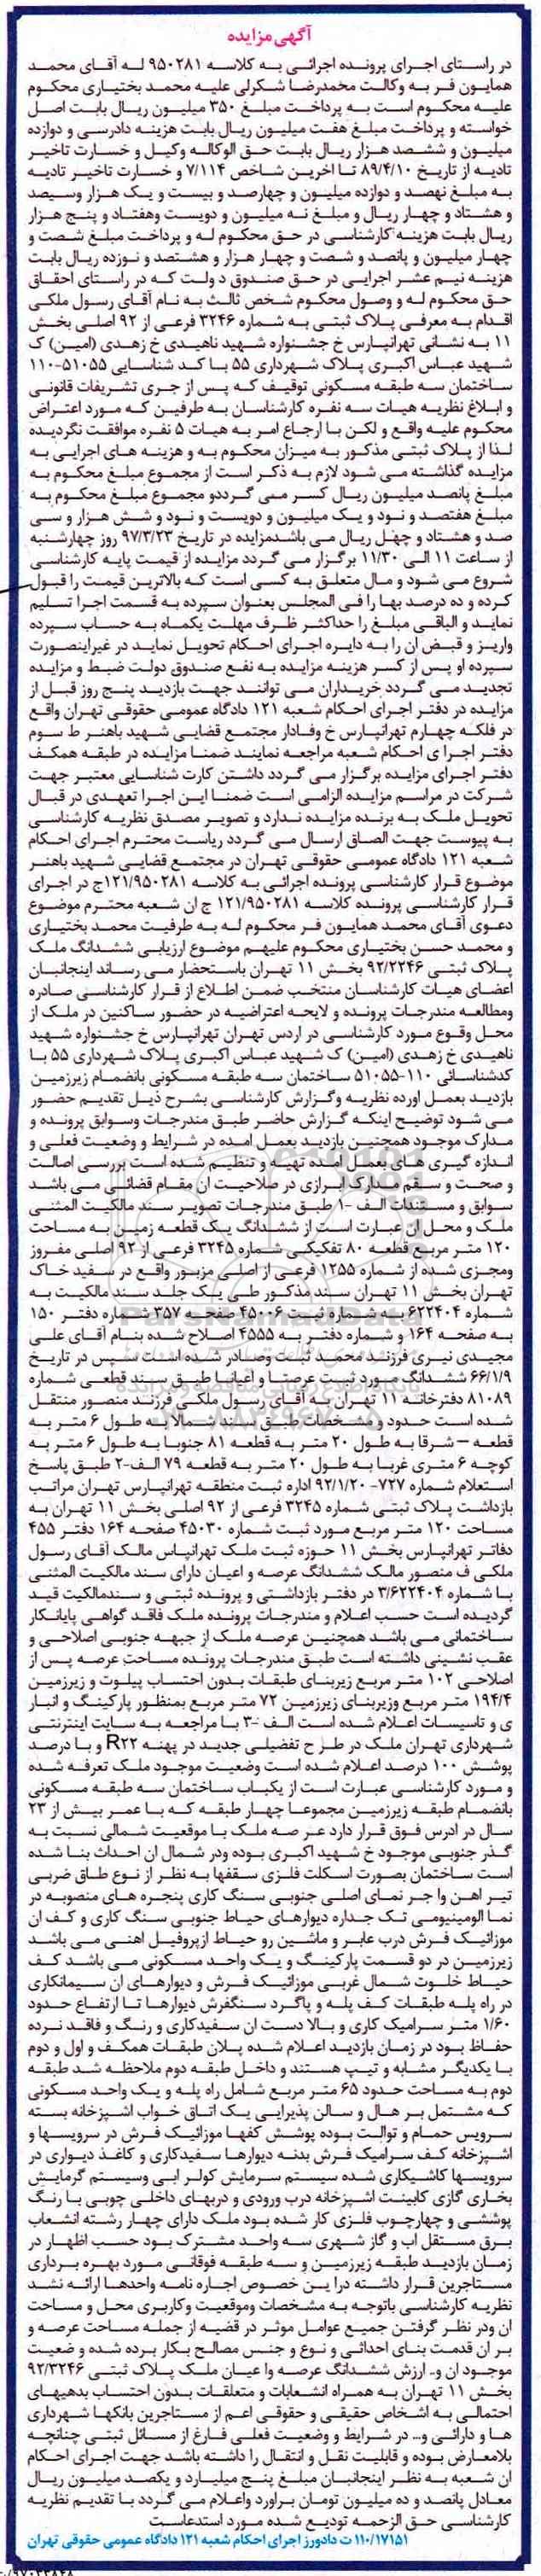 آگهی مزایده
در راستای اجرای پرونده اجرائی به کلاسه ۹۵۰۲۸۱ له آقای محمد
همایون فر به وکالت محمدرضا شکرلی علیه محمد بختیاری محکوم
علیه محکوم است به پرداخت مبلغ ۳۵۰ میلیون ریال بابت اصل
خواسته و پرداخت مبلغ هفت میلیون ریال بابت هزینه دادرسی و دوازده
میلیون و ششصد هزار ریال بابت حق الوکاله وکیل و خسارت تاخیر
تادیه از تاریخ ۸۹/۴/۱۰ تا اخرین شاخص ۷/۱۱۴ و خسارت تاخیر تادیه
به مبلغ نهصد و دوازده میلیون و چهارصد و بیست و یک هزار وسیصد
و هشتاد و چهار ریال و مبلغ نه میلیون و دویست وهفتاد و پنج هزار
ریال بابت هزینه کارشناسی در حق محکوم له و پرداخت مبلغ شصت و
چهار میلیون و پانصد و شصت و چهار هزار و هشتصد و نوزده ریال بابت
هزینه نیم عشر اجرایی در حق صندوق دولت که در راستای احقاق
حق محکوم له و وصول محکوم شخص ثالث به نام آقای رسول ملکی
اقدام به معرفی پلاک ثبتی به شماره ۳۲۴۶ فرعی از ۹۲ اصلی بخش
۱۱ به نشانی تهرانپارس خ جشنواره شهید ناهیدی خ زهدی (امین) ک
شهید عباس اکبری پلاک شهرداری ۵۵ با کد شناسایی ۵۱۰۵۵-۱۱۰
ساختمان سه طبقه مسکونی توقیف که پس از جری تشریفات قانونی
و ابلاغ نظریه هیات سه نفره کارشناسان به طرفین که مورد اعتراض
محکوم علیه واقع و لکن با ارجاع امر به هیات ۵ نفره موافقت نگردیده
لذا از پلاک ثبتی مذکور به میزان محکوم به و هزینه های اجرایی به
مزایده گذاشته می شود لازم به ذکر است از مجموع مبلغ محکوم به
مبلغ پانصد میلیون ریال کسر می گرددو مجموع مبلغ محکوم به
مبلغ هفتصد و نود و یک میلیون و دویست و نود و شش هزار و سی
صد و هشتاد و چهل ریال می باشدمزایده در تاریخ ۹۷/۳/۲۳ روز چهارشنبه
از ساعت ۱۱ الی ۱۱/۳۰ برگزار می گردد مزایده از قیمت پایه کارشناسی
شروع می شود و مال متعلق به کسی است که بالاترین قیمت را قبول
کرده و ده درصد بها را فی المجلس بعنوان سپرده به قسمت اجرا تسلیم
نماید و الباقی مبلغ را حداکثر ظرف مهلت یکماه به حساب سپرده
واریز و قبض ان را به دایره اجرای احکام تحویل نماید در غیراینصورت
سپرده او پس از کسر هزینه مزایده به نفع صندوق دولت ضبط و مزایده
تجدید می گردد خریداران می توانند جهت بازدید پنج روز قبل از
مزایده در دفتر اجرای احکام شعبه ۱۲۱ دادگاه عمومی حقوقی تهران واقع
در فلکه چهارم تهرانپارس خ وفادار مجتمع قضایی شهید باهنر ط سوم
دفتر اجرا ی احکام شعبه مراجعه نمایند ضمنا مزایده در طبقه همکف
دفتر اجرای مزایده برگزار می گردد داشتن کارت شناسایی معتبر جهت
شرکت در مراسم مزایده الزامی است ضمنا این اجرا تعهدی در قبال
تحویل ملک به برنده مزایده ندارد و تصویر مصدق نظریه کارشناسی
به پیوست جهت الصاق ارسال می گردد ریاست محترم اجرای احکام
شعبه ۱۲۱ دادگاه عمومی حقوقی تهران در مجتمع قضایی شهید باهنر
موضوع قرار کارشناسی پرونده اجرائی به کلاسه ۱۲۱/۹۵۰۲۸۱ج در اجرای
قرار کارشناسی پرونده کلاسه ۱۲۱/۹۵۰۲۸۱ ج ان شعبه محترم موضوع
دعوی آقای محمد همایون فر محکوم له به طرفیت محمد بختیاری
و محمد حسن بختیاری محکوم علیهم موضوع ارزیابی ششدانگ ملک
پلاک ثبتی ۹۲/۲۲۴۶ بخش ۱۱ تهران باستحضار می رساند اینجانبان
اعضای هیات کارشناسان منتخب ضمن اطلاع از قرار کارشناسی صادره
ومطالعه مندرجات پرونده و لایحه اعتراضیه در حضور ساکنین در ملک از
محل وقوع مورد کارشناسی در اردس تهران تهرانپارس خ جشنواره شهید
ناهیدی خ زهدی (امین) ک شهید عباس اکبری پلاک شهرداری ۵۵ با
کدشناسائی ۱۱۰-۵۱۰۵۵ ساختمان سه طبقه مسکونی بانضمام زیرزمین
بازدید بعمل اورده نظریه وگزارش کارشناسی بشرح ذیل تقدیم حضور
می شود توضیح اینکه گزارش حاضر طبق مندرجات وسوابق پرونده و
مدارک موجود همچنین بازدید بعمل امده در شرایط و وضعیت فعلی و
اندازه گیری های بعمل امده تهیه و تنظیم شده است بررسی اصالت
و صحت و سقم مدارک ابرازی در صلاحیت ان مقام قضائی می باشد
سوابق و مستندات الف -۱ طبق مندرجات تصویر سند مالکیت المثنی
ملک و محل ان عبارت است از ششدانگ یک قطعه زمین به مساحت
۱۲۰ متر مربع قطعه ۸۰ تفکیکی شماره ۳۲۴۵ فرعی از ۹۲ اصلی مفروز
ومجزی شده از شماره ۱۲۵۵ فرعی از اصلی مزبور واقع در سفید خاک
تهران بخش ۱۱ تهران سند مذکور طی یک جلد سند مالکیت به
شماره ۶۲۲۴۰۴ به شماره ثبت ۴۵۰۰۶ صفحه ۳۵۷ شماره دفتر ۱۵۰
به صفحه ۱۶۴ و شماره دفتر به ۴۵۵۵ اصلاح شده بنام آقای علی
مجیدی نیری فرزند محمد ثبت وصادر شده است سپس در تاریخ
۶۶/۱/۹ ششدانگ مورد ثبت عرصتا و اعیانا طبق سند قطعی شماره
۸۱۰۸۹ دفترخانه ۱۱ تهران به آقای رسول ملکی فرزند منصور منتقل
شده است حدود و مشخصات طبق سند شمالا به طول ۶ متر به
قطعه – شرقا به طول ۲۰ متر به قطعه ۸۱ جنوبا به طول ۶ متر به
کوچه ۶ متری غربا به طول ۲۰ متر به قطعه ۷۹ الف-۲ طبق پاسخ
استعلام شماره ۷۲۷- ۹۲/۱/۲۰ اداره ثبت منطقه تهرانپارس تهران مراتب
بازداشت پلاک ثبتی شماره ۳۲۴۵ فرعی از ۹۲ اصلی بخش ۱۱ تهران به
مساحت ۱۲۰ متر مربع مورد ثبت شماره ۴۵۰۳۰ صفحه ۱۶۴ دفتر ۴۵۵
دفاتر تهرانپارس بخش ۱۱ حوزه ثبت ملک تهرانپاس مالک آقای رسول
ملکی ف منصور مالک ششدانگ عرصه و اعیان دارای سند مالکیت المثنی
با شماره ۳/۶۲۲۴۰۴ در دفتر بازداشتی و پرونده ثبتی و سندمالکیت قید
گردیده است حسب اعلام و مندرجات پرونده ملک فاقد گواهی پایانکار
ساختمانی می باشد همچنین عرصه ملک از جبهه جنوبی اصلاحی و
عقب نشینی داشته است طبق مندرجات پرونده مساحت عرصه پس از
اصلاحی ۱۰۲ متر مربع زیربنای طبقات بدون احتساب پیلوت و زیرزمین
۱۹۴/۴ متر مربع وزیربنای زیرزمین ۷۲ متر مربع بمنظور پارکینگ و انبار
ی و تاسیسات اعلام شده است الف -۳ با مراجعه به سایت اینترنتی
شهرداری تهران ملک در طرح تفضیلی جدید در پهنه R۲۲ و با درصد
پوشش ۱۰۰ درصد اعلام شده است وضعیت موجود ملک تعرفه شده
و مورد کارشناسی عبارت است از یکباب ساختمان سه طبقه مسکونی
بانضمام طبقه زیرزمین مجموعا چهار طبقه که با عمر بیش از ۲۳
سال در ادرس فوق قرار دارد عرصه ملک با موقعیت شمالی نسبت به
گذر جنوبی موجود خ شهید اکبری بوده ودر شمال ان احداث بنا شده
است ساختمان بصورت اسکلت فلزی سقفها به نظر از نوع طاق ضربی
تیر اهن وا جر نمای اصلی جنوبی سنگ کاری پنجره های منصوبه در
نما الومینیومی تک جداره دیوارهای حیاط جنوبی سنگ کاری و کف ان
موزائیک فرش درب عابر و ماشین رو حیاط ازپروفیل اهنی می باشد
زیرزمین در دو قسمت پارکینگ و یک واحد مسکونی می باشد کف
حیاط خلوت شمال غربی موزائیک فرش و دیوارهای ان سیمانکاری
در راه پله طبقات کف پله و پاگرد سنگفرش دیوارها تا ارتفاع حدود
۱/۶۰ متر سرامیک کاری و بالا دست ان سفیدکاری و رنگ و فاقد نرده
حفاظ بود در زمان بازدید اعلام شده پلان طبقات همکف و اول و دوم
با یکدیگر مشابه و تیپ هستند و داخل طبقه دوم ملاحظه شد طبقه
دوم به مساحت حدود ۶۵ متر مربع شامل راه پله و یک واحد مسکونی
که مشتمل بر هال و سالن پذیرایی یک اتاق خواب اشپزخانه بسته
سرویس حمام و توالت بوده پوشش کفها موزائیک فرش در سرویسها و
اشپزخانه کف سرامیک فرش بدنه دیوارها سفیدکاری و کاغذ دیواری در
سرویسها کاشیکاری شده سیستم سرمایش کولر ابی وسیستم گرمایش
بخاری گازی کابینت اشپزخانه درب ورودی و دربهای داخلی چوبی با رنگ
پوششی و چهارچوب فلزی کار شده بود ملک دارای چهار رشته انشعاب
برق مستقل اب و گاز شهری سه واحد مشترک بود حسب اظهار در
زمان بازدید طبقه زیرزمین و سه طبقه فوقانی مورد بهره برداری
مستاجرین قرار داشته درا ین خصوص اجاره نامه واحدها ارائه نشد
نظریه کارشناسی باتوجه به مشخصات وموقعیت وکاربری محل و مساحت
ان ودر نظر گرفتن جمیع عوامل موثر در قضیه از جمله مساحت عرصه و
بر ان قدمت بنای احداثی و نوع و جنس مصالح بکار برده شده و ضعیت
موجود ان و.. ارزش ششدانگ عرصه وا عیان ملک پلاک ثبتی ۹۲/۳۲۴۶
بخش ۱۱ تهران به همراه انشعابات و متعلقات بدون احتساب بدهیهای
احتمالی به اشخاص حقیقی و حقوقی اعم از مستاجرین بانکها شهرداری
ها و دارائی و... در شرایط و وضعیت فعلی فارغ از مسائل ثبتی چنانچه
بلامعارض بوده و قابلیت نقل و انتقال را داشته باشد جهت اجرای احکام
ان شعبه به نظر اینجانبان مبلغ پنج میلیارد و یکصد میلیون ریال
معادل پانصد و ده میلیون تومان براورد واعلام می گردد با تقدیم نظریه
کارشناسی حق الزحمه تودیع شده مورد استدعاست
۱۱۰/۱۷۱۵۱ ت دادورز اجرای احکام شعبه ۱۲۱ دادگاه عمومی حقوقی تهران